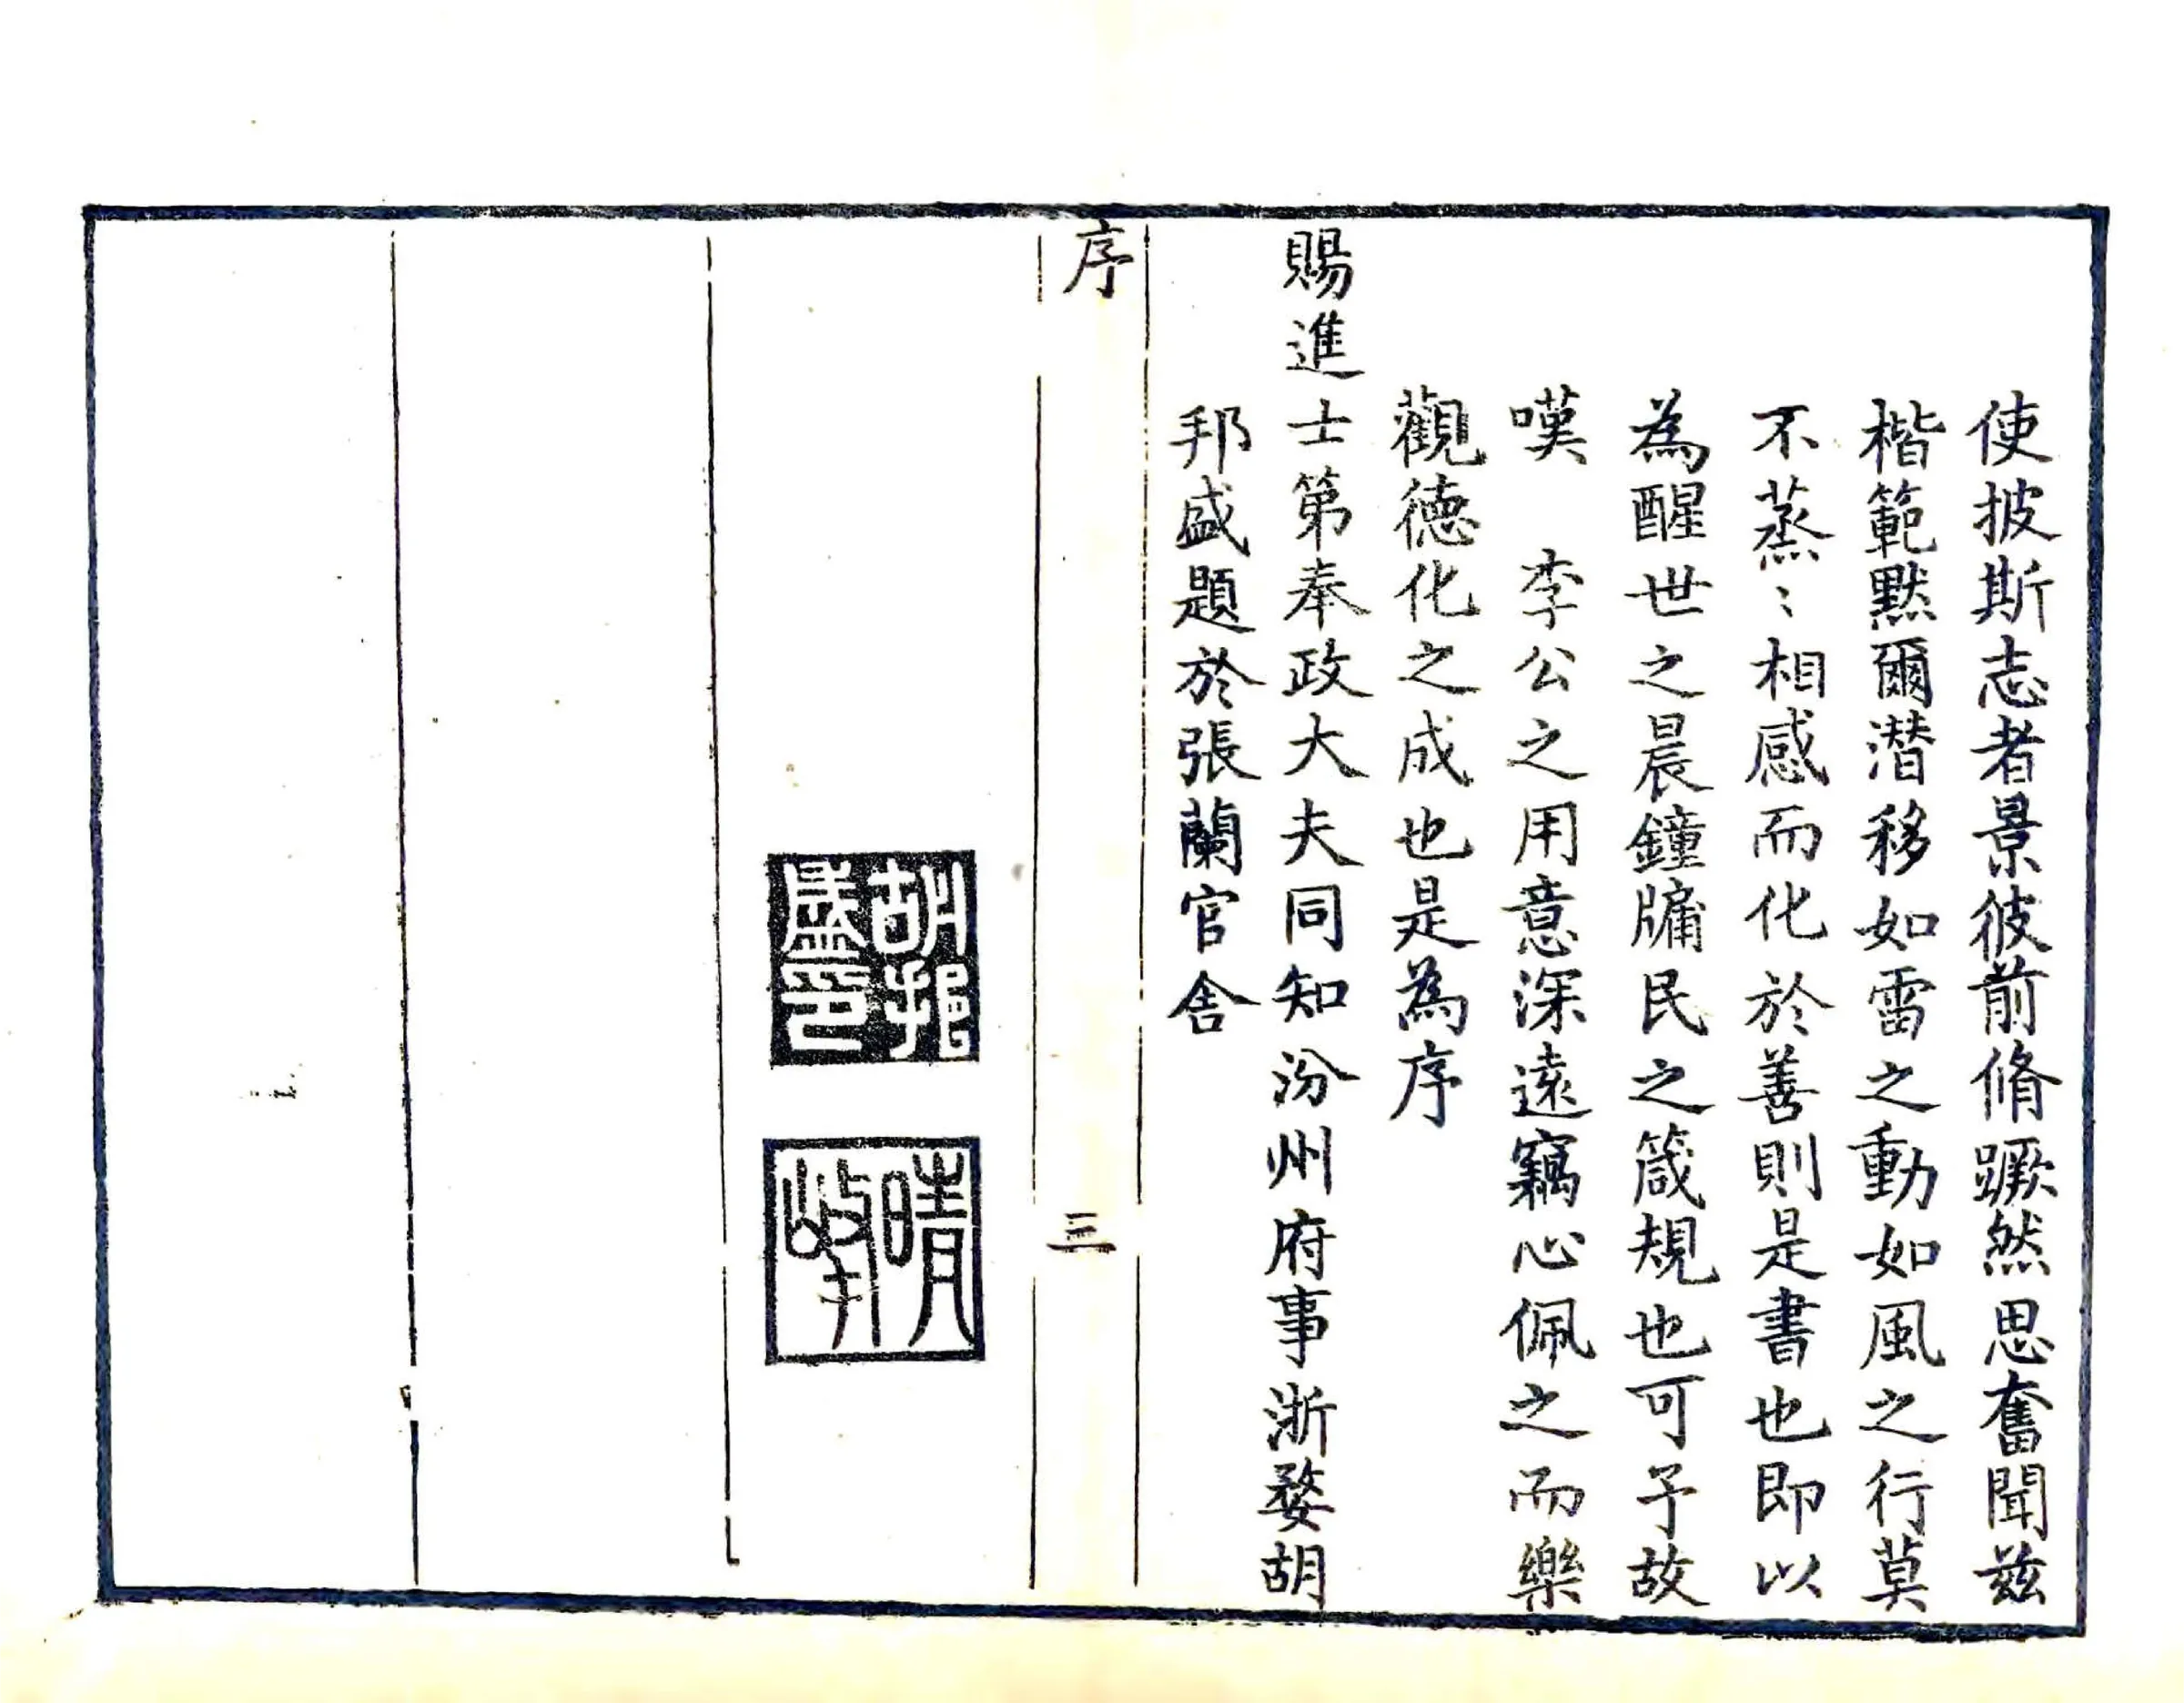 使披斯志者景彼前脩蹶然思奮聞玆
楷範默爾潛移如雷之動如風之行莫
不蒸〻相感而化於善則是書也即以
為醒世之晨鐘牖民之箴規也可予故
嘆　李公之用意深遠竊心佩之而樂
觀德化之成也是為序
賜進士第奉政大夫同知汾州府事浙婺胡
邦盛題於張蘭官舍
序
三
胡邦
盛印
晴
峰